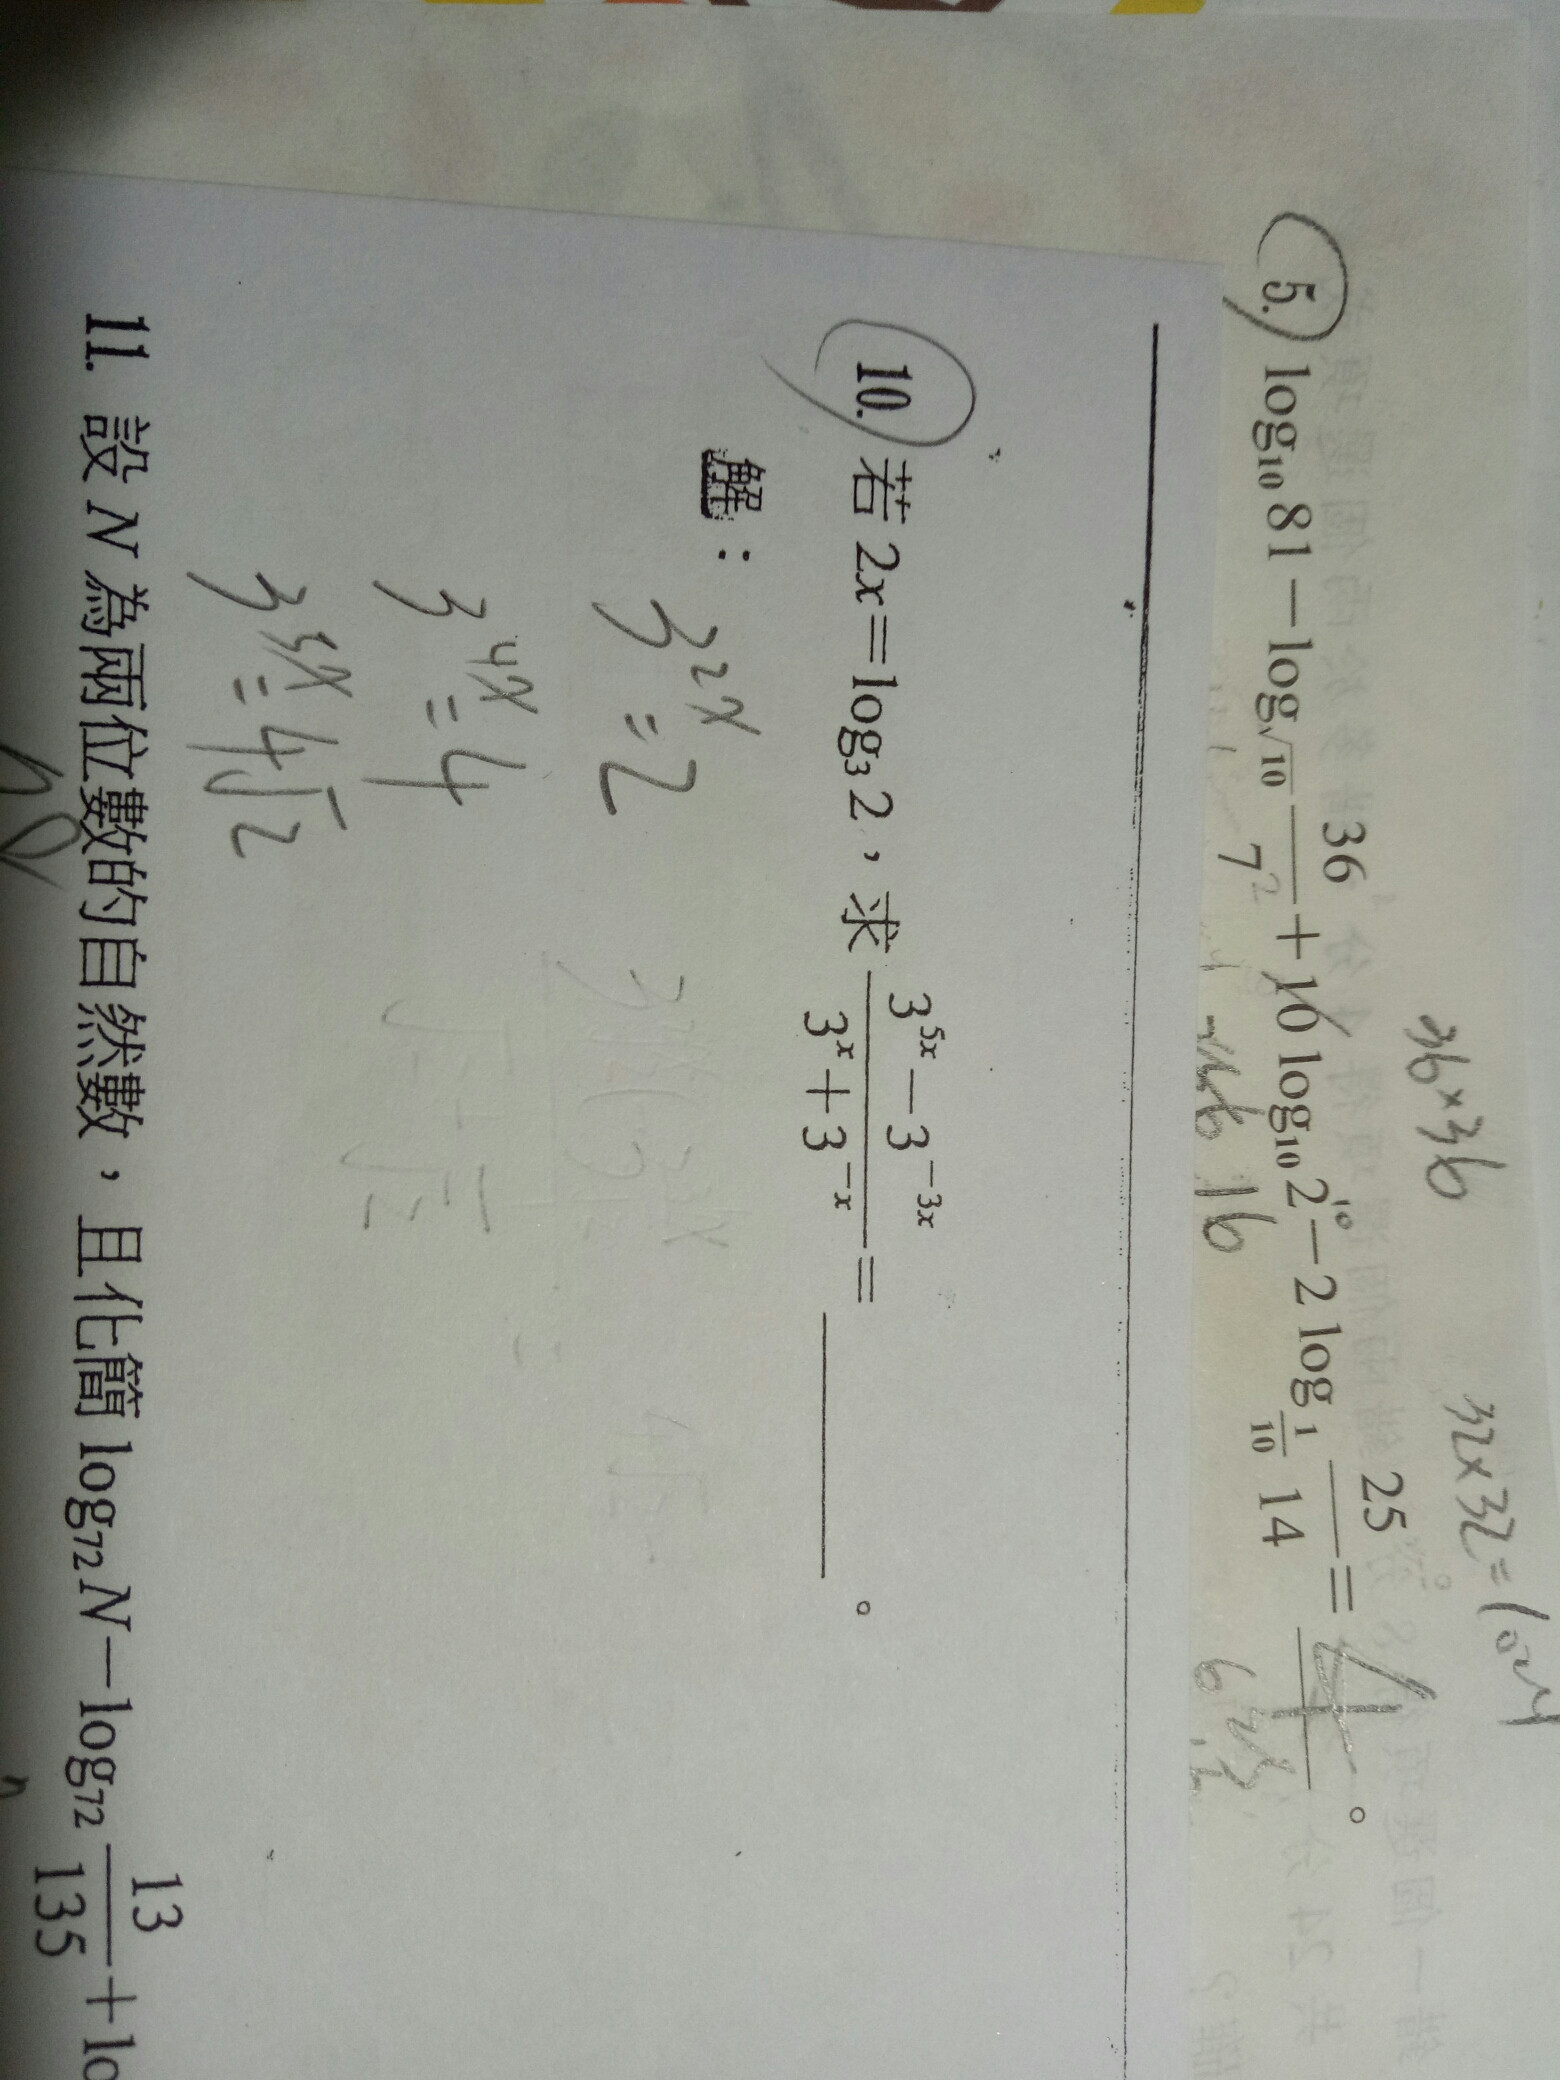 36×36
32×32=1024
5. log₁₀ 81－log_√10 36/7²＋10 log₁₀ 2¹⁰－2 log_1/10 25/14＝____。
16
10. 若 2x＝log₃ 2，求 (3^5x－3^－3x)/(3^x＋3^－x)＝____。
解：
3^2x=2
3^4x=4
3^5x=4√2
11. 設 N 為兩位數的自然數，且化簡 log₇₂ N－log₇₂ 13/135＋lo